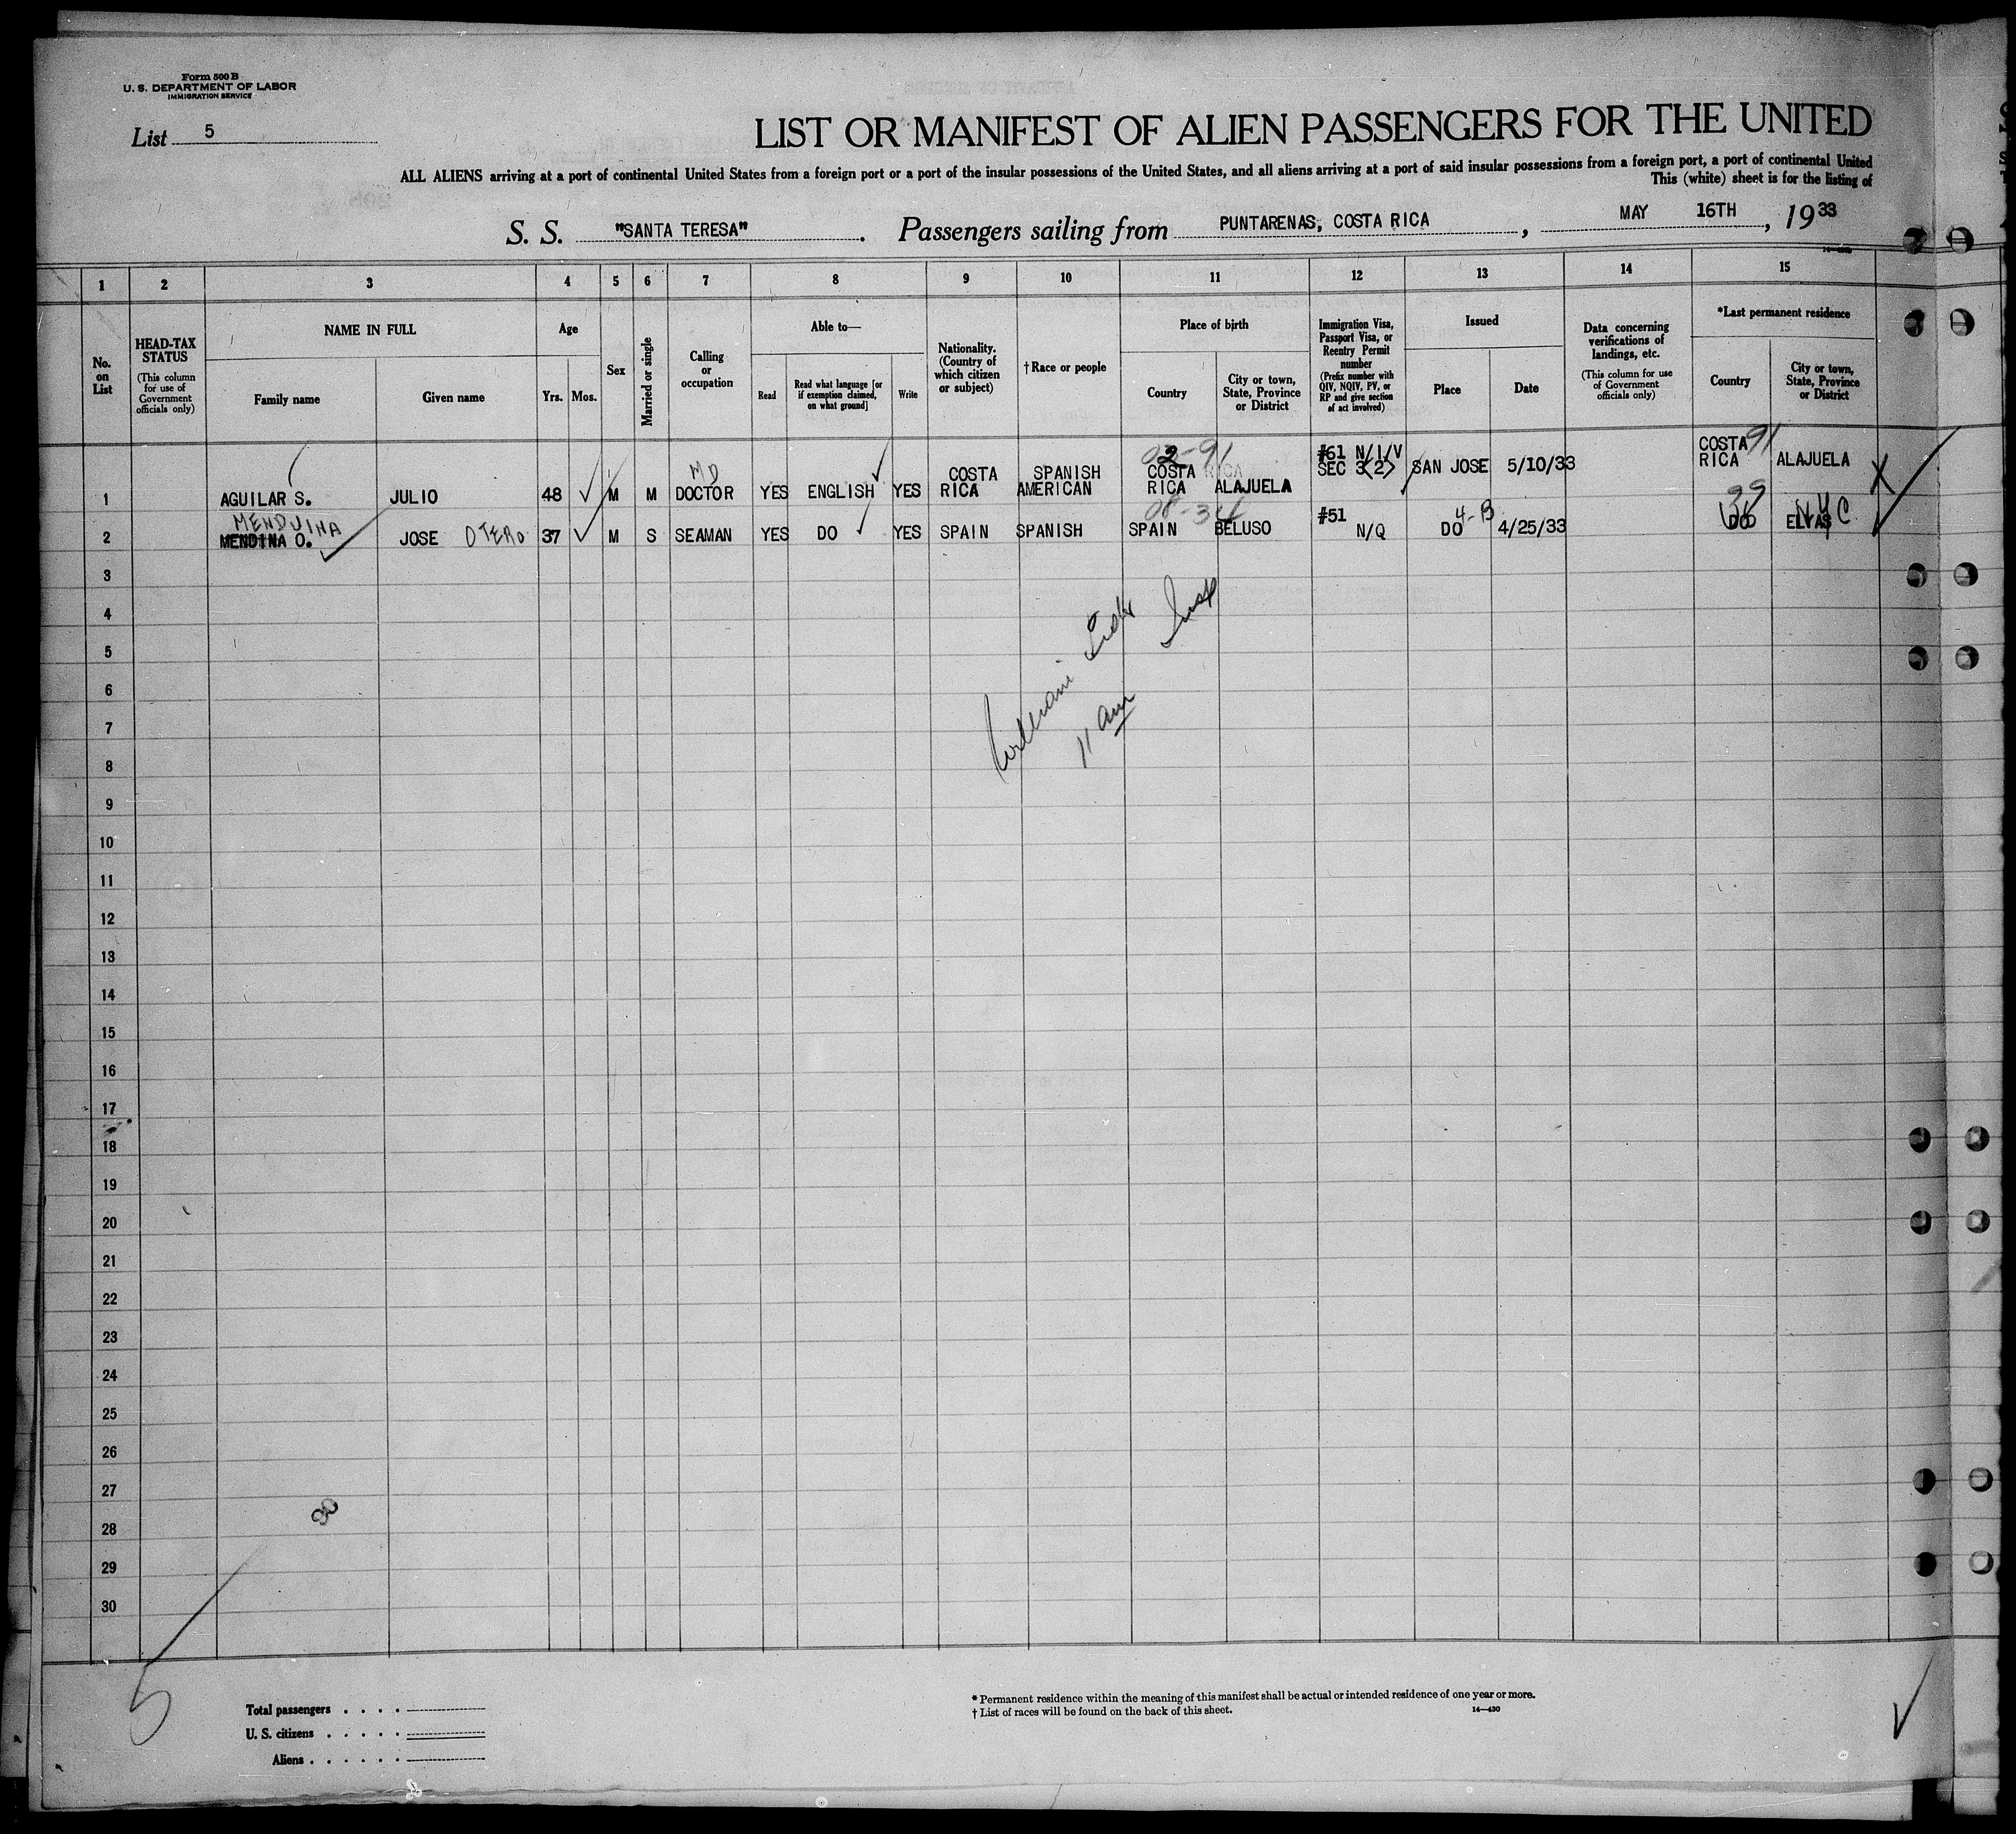 Form 500 B
U. S. DEPARTMENT OF LABOR
IMMIGRATION SERVICE
List 5
LIST OR MANIFEST OF ALIEN PASSENGERS FOR THE UNITED
ALL ALIENS arriving at a port of continental United States from a foreign port or a port of the insular possessions of the United States, and all aliens arriving at a port of said insular possessions from a foreign port, a port of continental United
This (white) sheet is for the listing of
S. S. "SANTA TERESA". Passengers sailing from PUNTARENAS, COSTA RICA, MAY 16TH, 1933
1 2 3 4 5 6 7 8 9 10 11 12 13 14 15
No. on List
HEAD-TAX STATUS
(This column for use of Government officials only)
NAME IN FULL
Family name
Given name
Age
Yrs. Mos.
Sex
Married or single
Calling or occupation
Able to—
Read
Read what language [or if exemption claimed, on what ground]
Write
Nationality. (Country of which citizen or subject)
† Race or people
Place of birth
Country
City or town, State, Province or District
Immigration Visa, Passport Visa, or Reentry Permit number
(Prefix number with QIV, NQIV, PV, or RP and give section of act involved)
Issued
Place
Date
Data concerning verifications of landings, etc.
(This column for use of Government officials only)
*Last permanent residence
Country
City or town, State, Province or District
MD 02-91 #61 N/I/V COSTA 91
COSTA SPANISH COSTA RICA SEC 3(2) SAN JOSE 5/10/33 RICA ALAJUELA
1 AGUILAR S. JULIO 48 M M DOCTOR YES ENGLISH YES RICA AMERICAN RICA ALAJUELA X
MENDUINA 08-34 #51 4-B 99 NYC
2 MENDINA O. JOSE OTERO 37 M S SEAMAN YES DO YES SPAIN SPANISH SPAIN BELUSO N/Q DO 4/25/33 DO
3
4
5
6
7
8
9
10
11
12
13
14
15
16
17
18
19
20
21
22
23
24
25
26
27
28
29
30
William
11 am
5
Total passengers
U. S. citizens
Aliens
* Permanent residence within the meaning of this manifest shall be actual or intended residence of one year or more.
† List of races will be found on the back of this sheet.
14—430